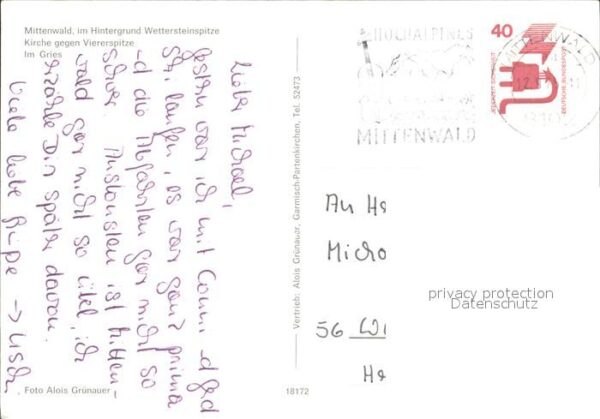 Mittenwald, im Hintergrund Wettersteinspitze
Kirche gegen Viererspitze
Im Gries
Lieber Michael,
gestern war ich mit Conni
Ski laufen, es war ganz prima
die Abfahrten gar nicht so
schwer. Ansonsten ist Mitten-
wald gar nicht so übel, ich
erzähle Dir später davon.
Viele liebe Grüße
Foto Alois Grünauer
18172
Vertrieb: Alois Grünauer, Garmisch-Partenkirchen, Tel. 52473
HOCHALPINES
MITTENWALD
MITTENWALD
40
DEUTSCHE BUNDESPOST
An He
Micha
56 Wi
He
privacy protection
Datenschutz